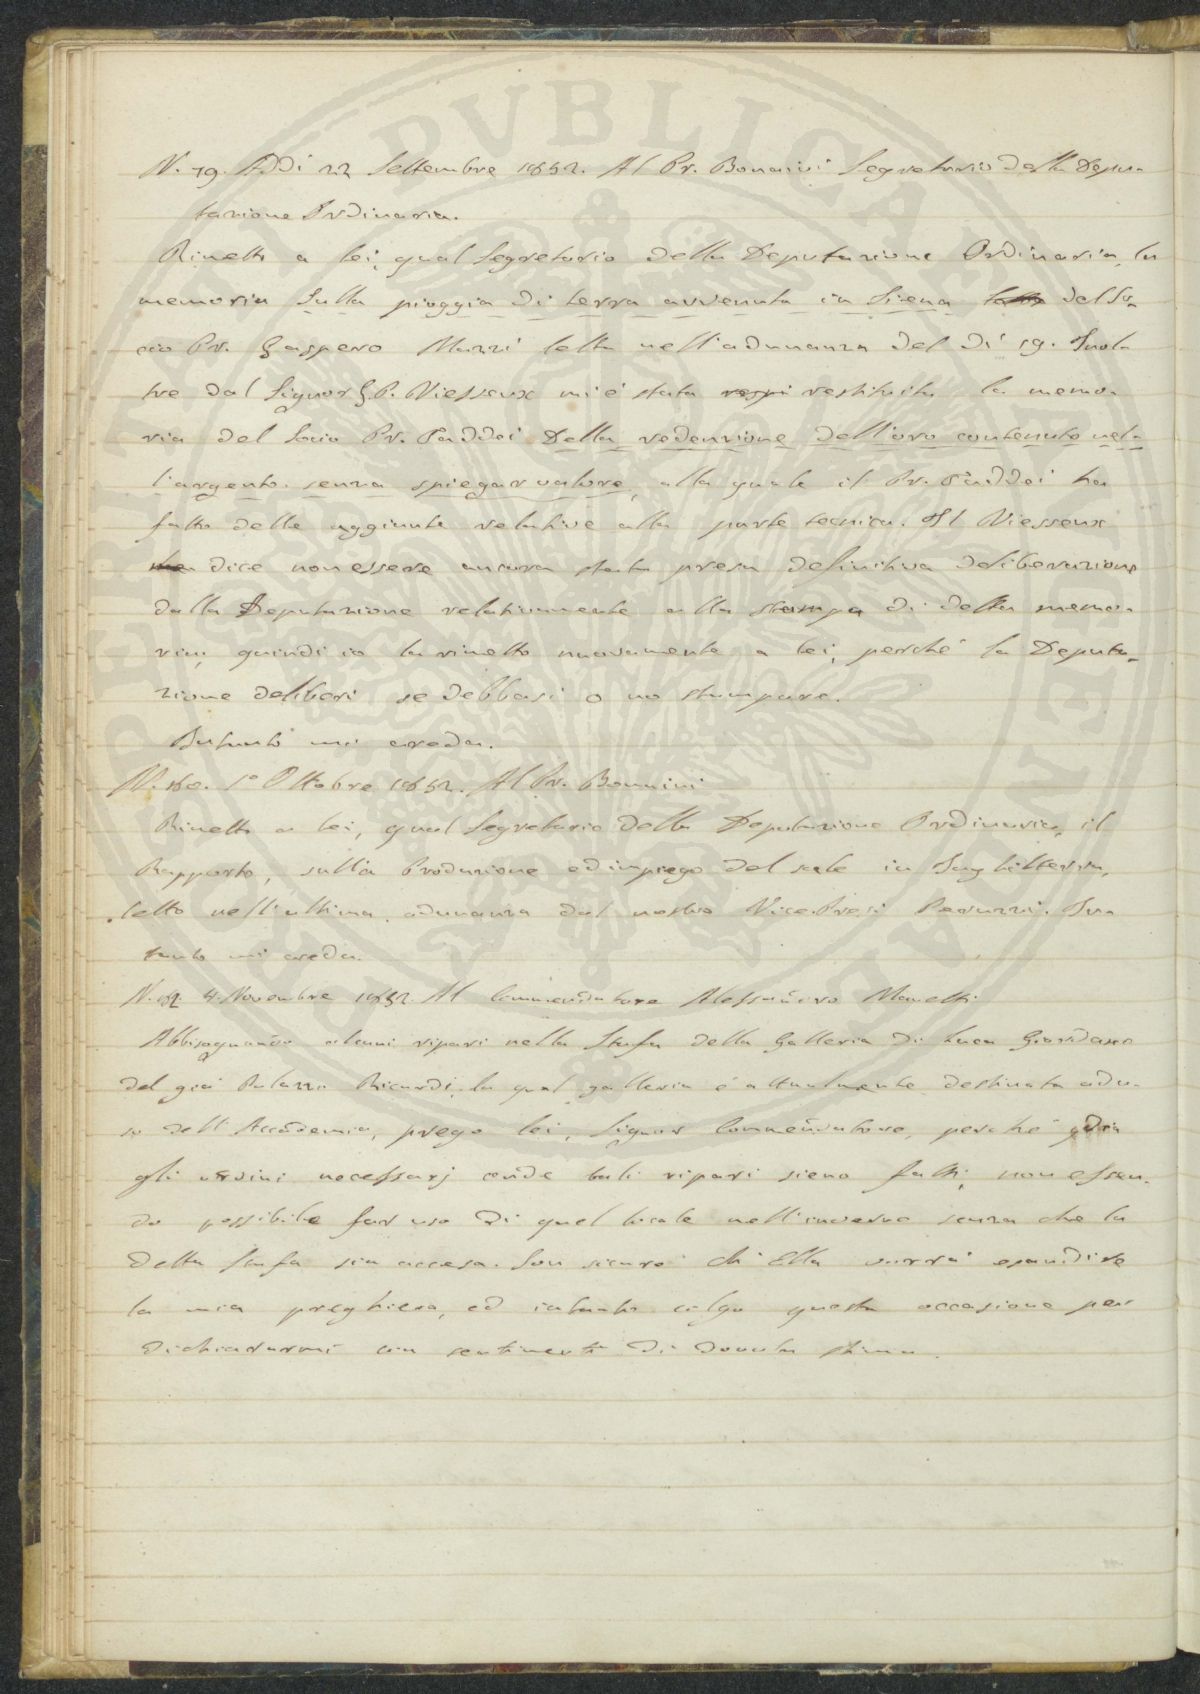 N. 79. Addì 22 Settembre 1852. Al Pr. Bonaini Segretario della Depu-
tazione Ordinaria.
Rimetto a lei, qual Segretario della Deputazione Ordinaria, la
memoria sulla pioggia di terra avvenuta in Siena del So-
cio Pr. Gaspero Mazzi letta nell'adunanza del dì 19. Inol-
tre dal Signor G. P. Viesseux mi è stata restituita la memo-
ria del Socio Pr. Taddei Della redenzione dell'oro contenuto nel-
l'argento senza spiegar valore, alla quale il Pr. Taddei ha
fatto delle aggiunte relative alla parte tecnica. Il Viesseux
dice non essere ancora stata presa definitiva deliberazione
dalla Deputazione relativamente alla stampa di detta memo-
ria, quindi io la rimetto nuovamente a lei, perché la Deputa-
zione deliberi se debbasi o no stampare.
Intanto mi creda.
N. 180. 1° Ottobre 1852. Al Pr. Bonaini
Rimetto a lei, qual Segretario della Deputazione Ordinaria, il
Rapporto, sulla Produzione ed impiego del sale in Inghilterra,
letto nell'ultima adunanza dal nostro Vice-Presi Peruzzi. In-
tanto mi creda.
4. Novembre 1852. Al Commendatore Alessandro Manetti
Abbisognando alcuni ripari nella Stufa della Galleria di Luca Giordano
del già Palazzo Ricardi, la qual galleria è attualmente destinata ad u-
so dell'Accademia, prego lei, Signor Commendatore, perché dia
gli ordini necessarj onde tali ripari sieno fatti, non essen-
do possibile far uso di quel locale nell'inverno senza che la
detta stufa sia accesa. Son sicuro ch'Ella vorrà esaudire
la mia preghiera, ed intanto colgo questa occasione per
dichiararmi con sentimenti di dovuta stima.
PVBLICA